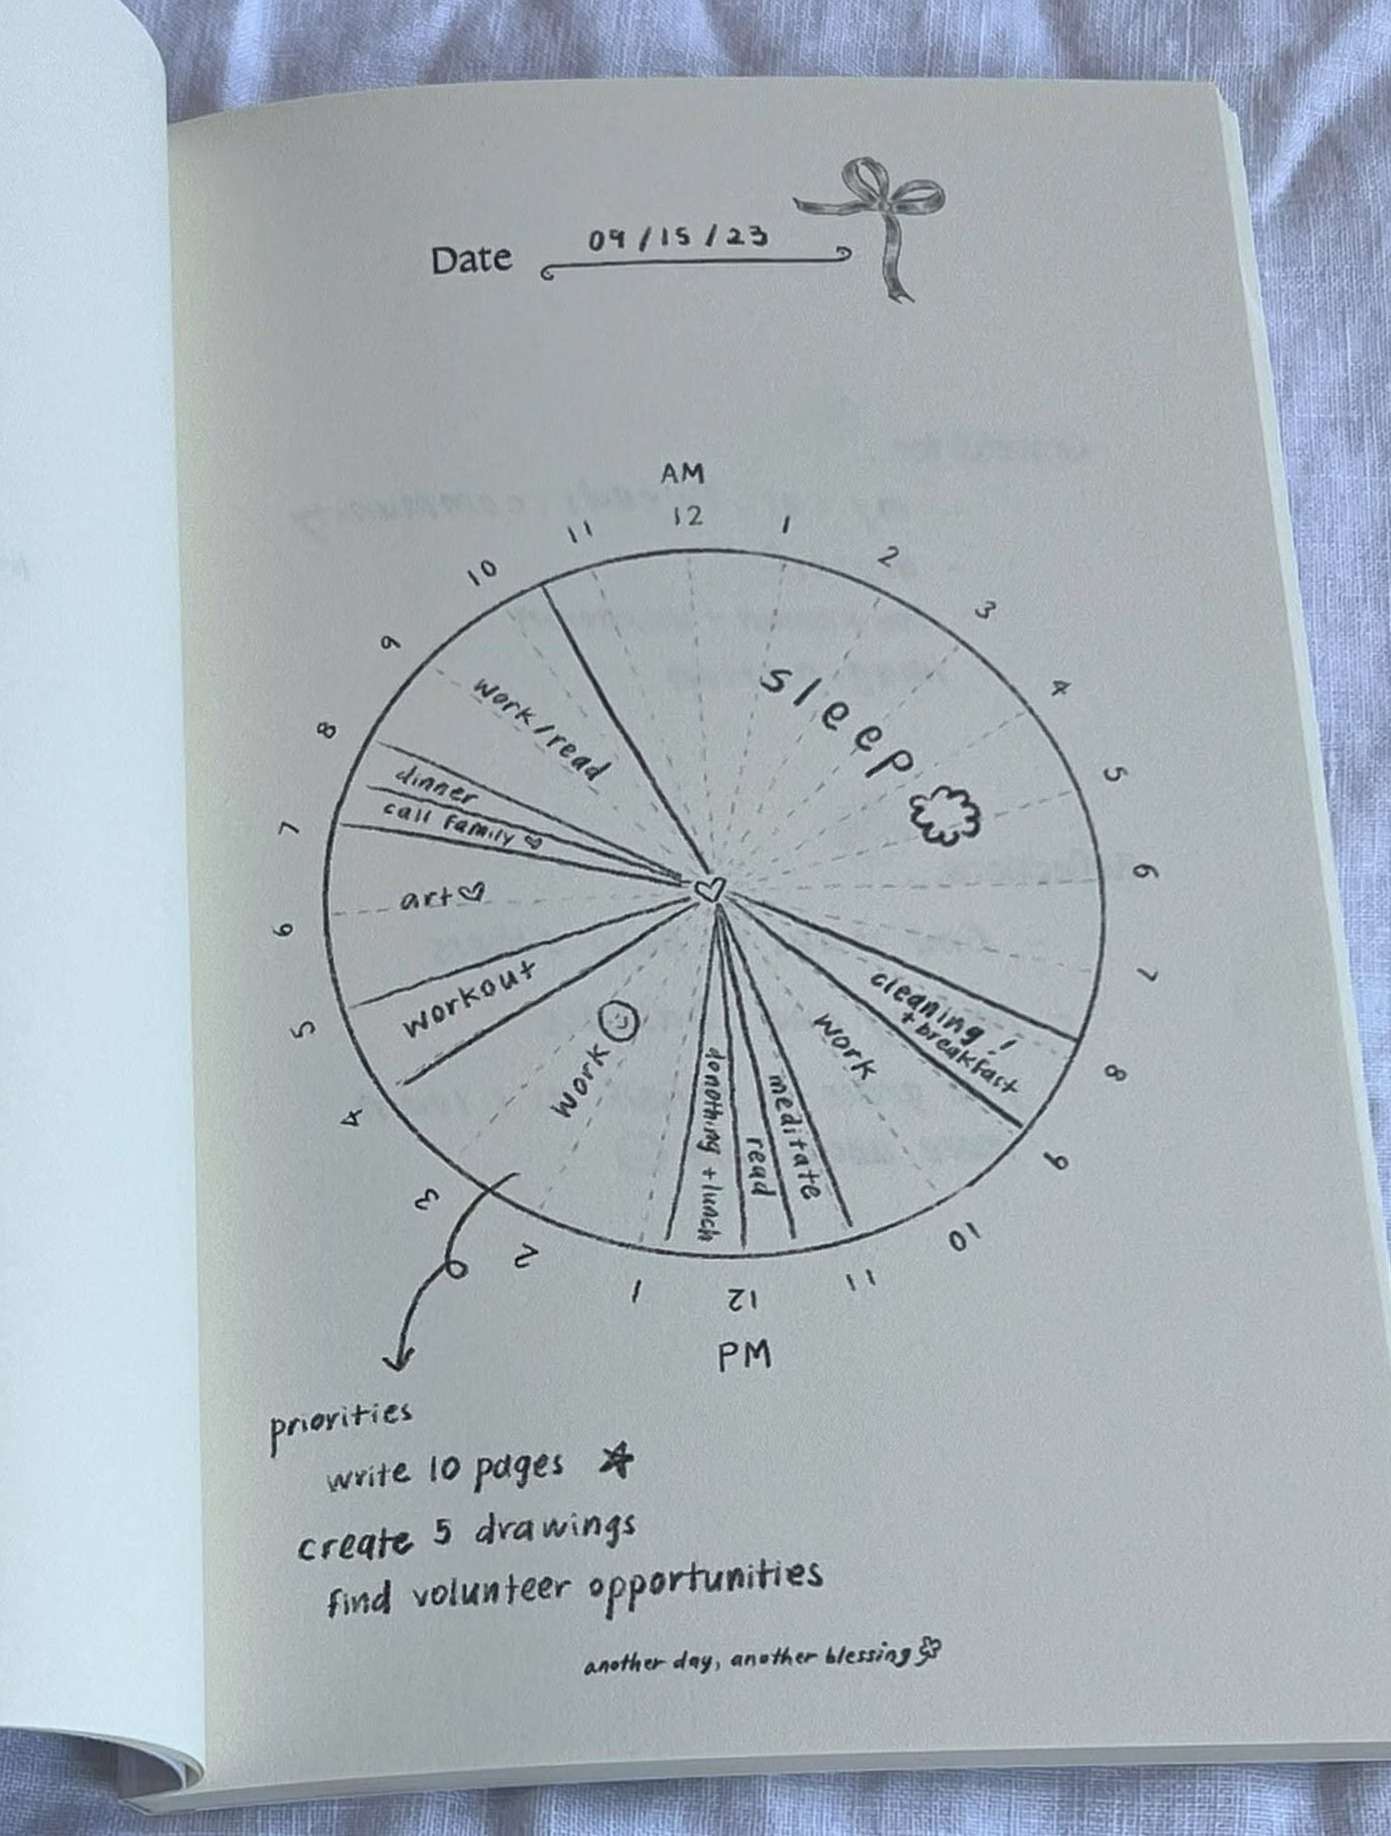 Date 09/15/23
AM
12
1
2
3
4
5
6
7
8
9
10
11
12
PM
1
2
3
4
5
6
7
8
9
10
11
sleep
cleaning!
+ breakfast
work
meditate
read
do nothing + lunch
work
workout
art
call family
dinner
work/read
priorities
write 10 pages
create 5 drawings
find volunteer opportunities
another day, another blessing